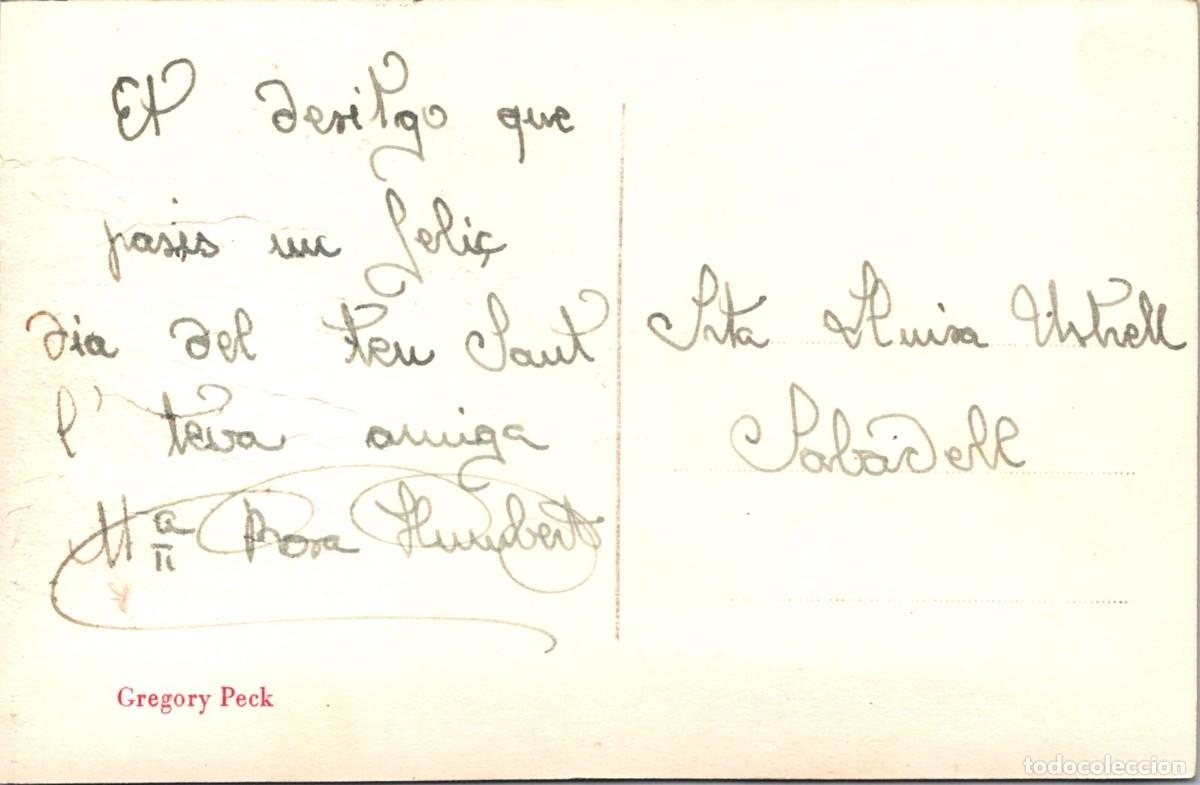 Et desitgo que
pasis un feliç
dia del teu Sant
l' teva amiga
Mª Rosa Humbert
Gregory Peck
Srta Lluisa Ustrell
Sabadell
todocoleccion